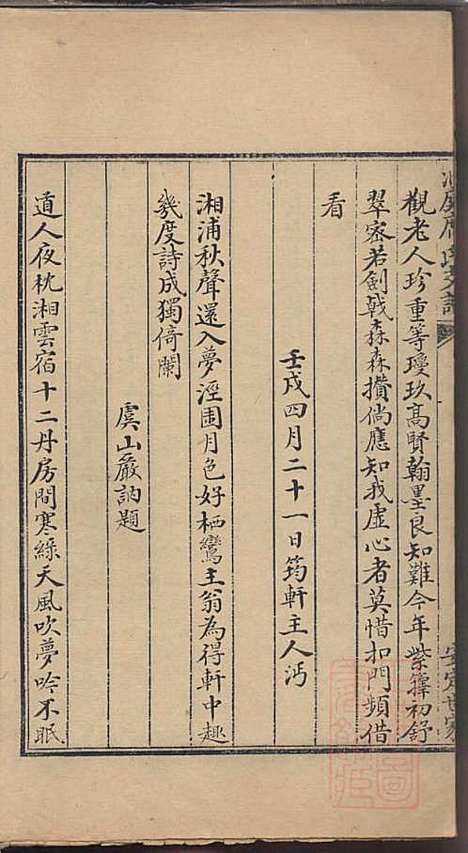 觀老人珍重等瓊玖高賢翰墨良知難今年紫籜初舒
翠密若劍戟森森攢倘應知我虛心者莫惜扣門頻借
看
壬戌四月二十一日筠軒主人沔
湘浦秋聲還入夢淫囿月色好栖鸞主翁為得軒中趣
幾度詩成獨倚闌
虞山嚴訥題
道人夜枕湘雲宿十二丹房間寒綠天風吹夢吟不眠